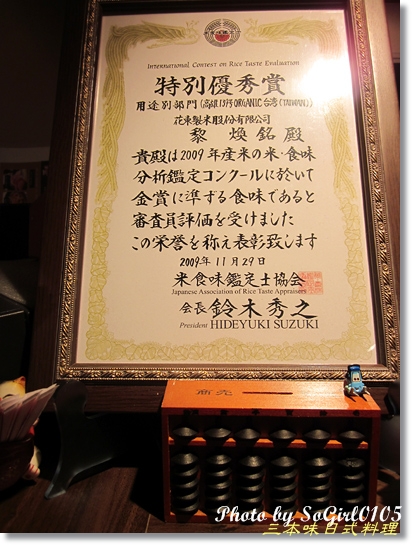 International Contest on Rice Taste Evaluation
特別優秀賞
用途別部門(高雄139 ORGANIC 台湾(TAIWAN))
花東製米股份有限公司
黎 煥銘 殿
貴殿は2009年産米の米・食味
分析鑑定コンクールに於いて
金賞に準ずる食味であると
審査員評価を受けました
この栄誉を称え表彰致します
2009年 11月29日
米食味鑑定士協会
Japanese Association of Rice Taste Appraisers
会長 鈴木秀之
President HIDEYUKI SUZUKI
商売
Photo by SoGirl0105
三本味日式料理